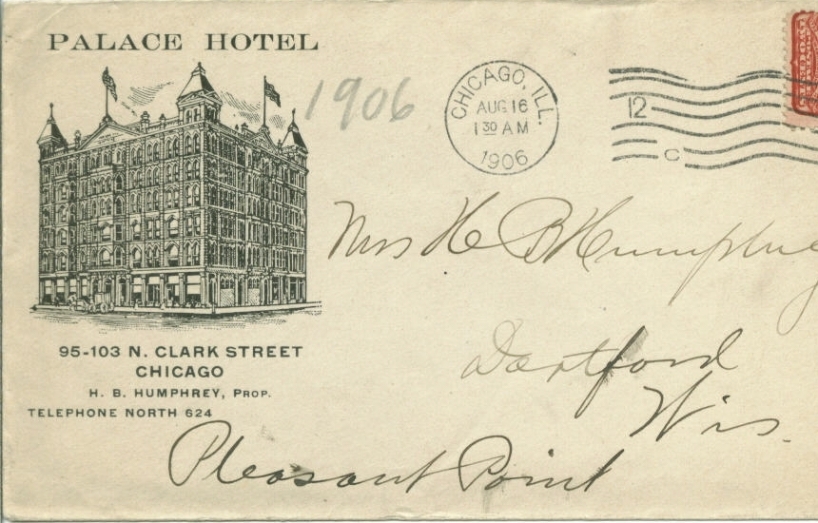 PALACE HOTEL
1906
CHICAGO, ILL.
AUG 16
1 30 AM
1906
12
C
Mrs H B Humphrey
Dartford
Wis.
Pleasant Point
95-103 N. CLARK STREET
CHICAGO
H. B. HUMPHREY, PROP.
TELEPHONE NORTH 624